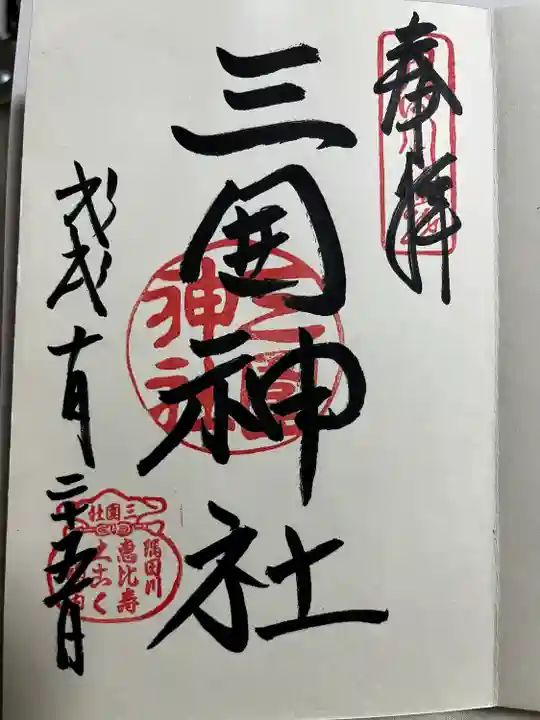 奉拝
三囲神社
三囲神社
戊戌 十月 二十五日
三囲社
隅田川
恵比寿
大こく